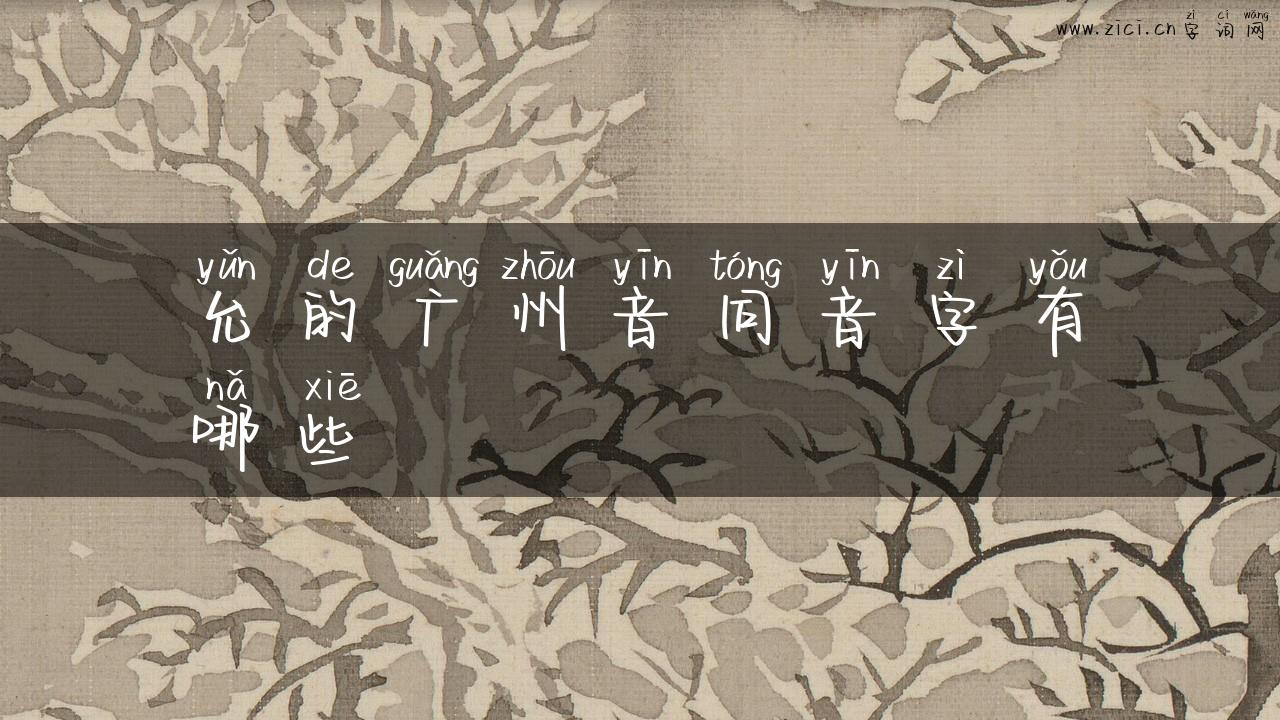 zì cí wǎng
www.zici.cn字词网
yǔn de guǎng zhōu yīn tóng yīn zì yǒu
允的广州音同音字有
nǎ xiē
哪些